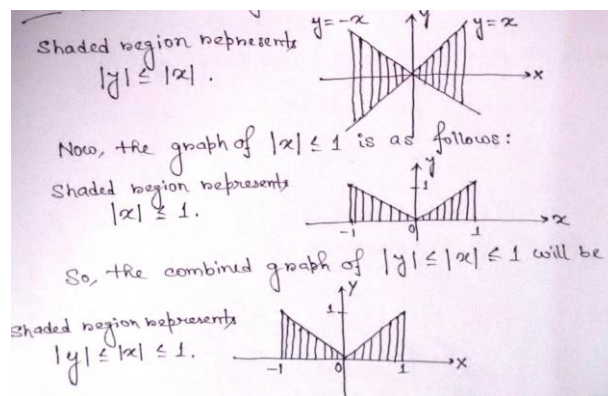 Shaded region represents
|y| ≤ |x|.
y=-x
y
y=x
x
Now, the graph of |x| ≤ 1 is as follows:
Shaded region represents
|x| ≤ 1.
y
1
-1
0
1
x
So, the combined graph of |y| ≤ |x| ≤ 1 will be
Shaded region represents
|y| ≤ |x| ≤ 1.
y
1
-1
0
1
x